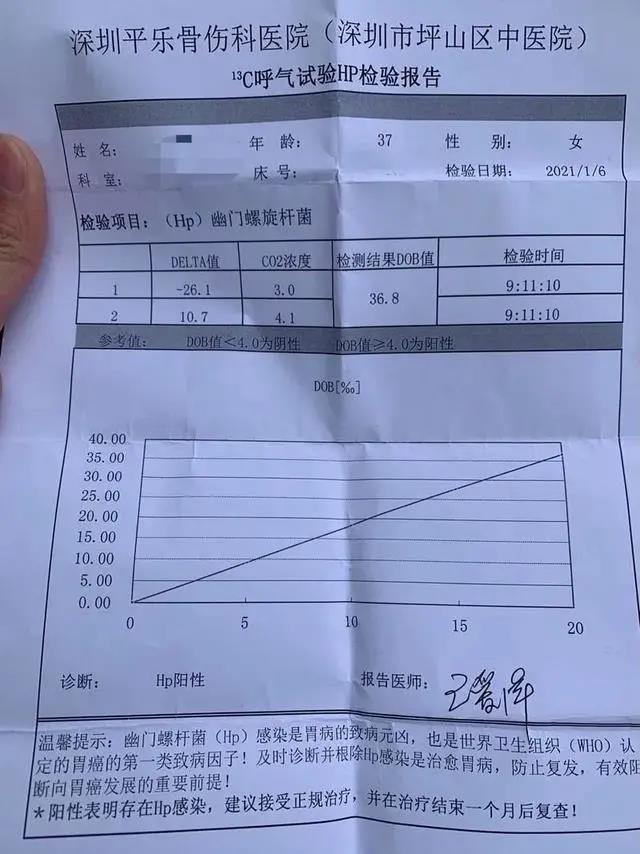 深圳平乐骨伤科医院（深圳市坪山区中医院）
¹³C呼气试验HP检验报告
姓 名: 年 龄: 37 性 别: 女
科 室: 床 号: 检验日期: 2021/1/6
检验项目:（Hp）幽门螺旋杆菌
DELTA值 CO2浓度 检测结果DOB值 检验时间
1 -26.1 3.0 36.8 9:11:10
2 10.7 4.1 9:11:10
参考值: DOB值＜4.0为阴性 DOB值≥4.0为阳性
DOB[‰]
40.00
35.00
30.00
25.00
20.00
15.00
10.00
5.00
0.00
0 5 10 15 20
诊断: Hp阳性 报告医师:
温馨提示: 幽门螺杆菌（Hp）感染是胃病的致病元凶，也是世界卫生组织（WHO）认
定的胃癌的第一类致病因子！及时诊断并根除Hp感染是治愈胃病，防止复发，有效阻
断向胃癌发展的重要前提！
*阳性表明存在Hp感染，建议接受正规治疗，并在治疗结束一个月后复查！